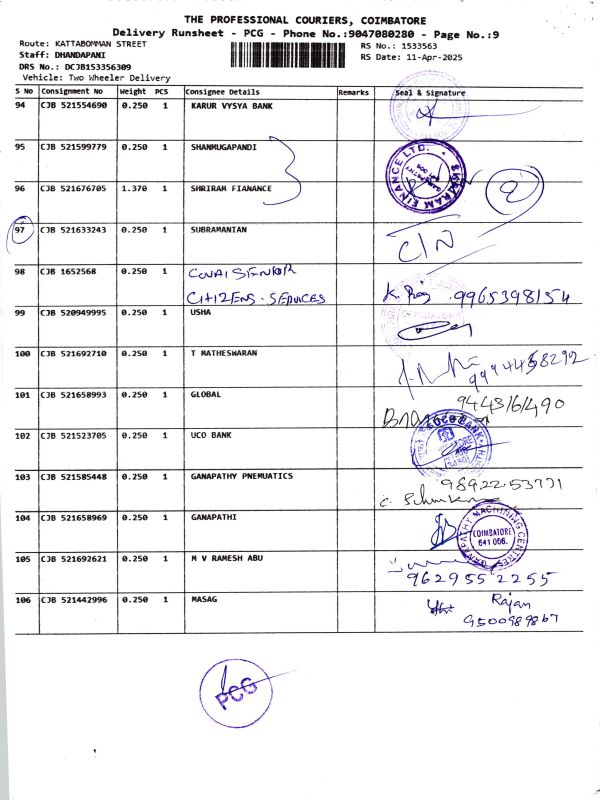 THE PROFESSIONAL COURIERS, COIMBATORE
Delivery Runsheet - PCG - Phone No.:9047080280 - Page No.:9
Route: KATTABOMMAN STREET
RS No.: 1533563
Staff: DHANDAPANI
RS Date: 11-Apr-2025
DRS No.: DCJB153356309
Vehicle: Two Wheeler Delivery
S No Consignment No Weight PCS Consignee Details Remarks Seal & Signature
94 CJB 521554690 0.250 1 KARUR VYSYA BANK
95 CJB 521599779 0.250 1 SHANMUGAPANDI
96 CJB 521676705 1.370 1 SHRIRAM FIANANCE
SHRIRAM FINANCE LTD.
2
97 CJB 521633243 0.250 1 SUBRAMANIAN C/N
98 CJB 1652568 0.250 1 COVAI SENIOR
CITIZENS. SERVICES K. Raj 9965398154
99 CJB 520949995 0.250 1 USHA
100 CJB 521692710 0.250 1 T MATHESWARAN
101 CJB 521658993 0.250 1 GLOBAL
102 CJB 521523705 0.250 1 UCO BANK
UCO BANK
103 CJB 521585448 0.250 1 GANAPATHY PNEMUATICS
104 CJB 521658969 0.250 1 GANAPATHI
GANAPATHY MACHINING CENTRES
COIMBATORE
641 006.
105 CJB 521692621 0.250 1 M V RAMESH ABU
9629552255
106 CJB 521442996 0.250 1 MASAG
Rajan
9500989867
PCG